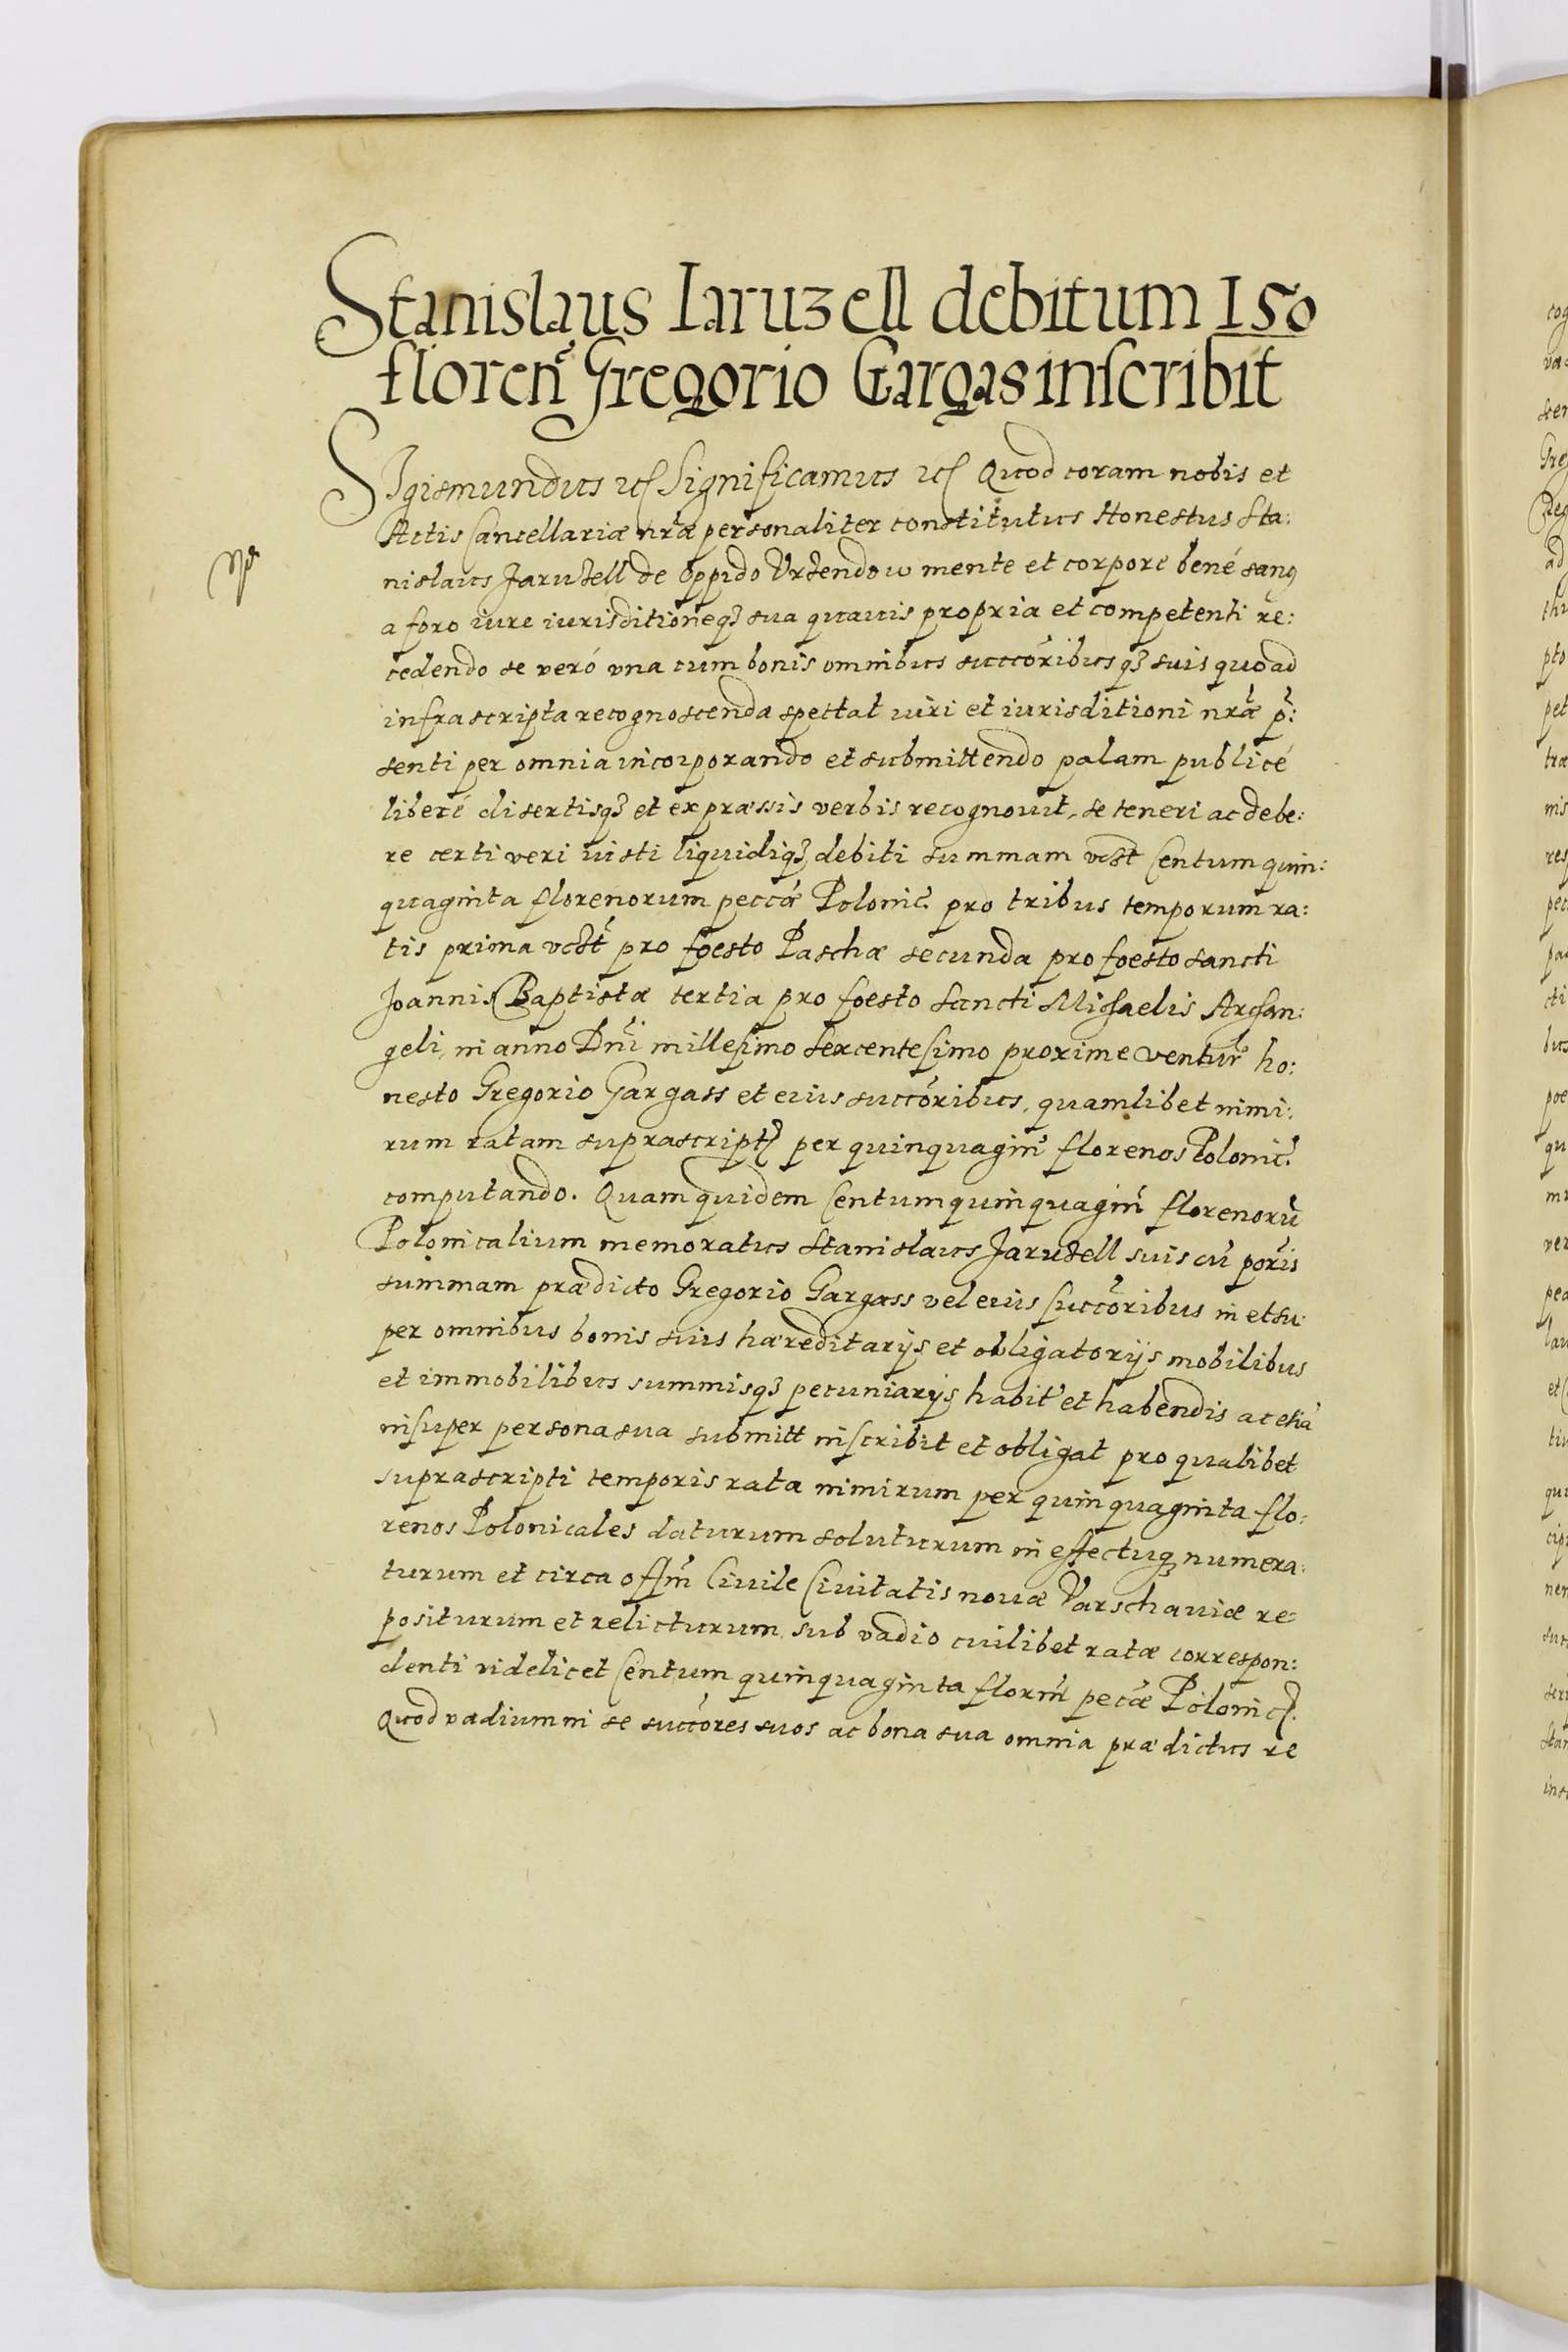 Stanislaus Iaruzell debitum 150
floren̄ Gregorio Gargas inscribit
Sigismundus etc Significamus etc Quod coram nobis et
Actis Cancellariæ nr̄æ personaliter constitutus Honestus Sta:
nislaus Jaruzell de Oppido Vrzendow mente et corpore bené sanꝰ
a foro iure iurisditioneqꝫ sua quauis propria et competenti re:
cedendo se veró vna cum bonis omnibus succōribusqꝫ suis quoad
infrascripta recognoscenda spectat iuri et iurisditioni nr̄æ p̄:
senti per omnia incorporando et submittendo palam publicé
liberé disertisqꝫ et expræssis verbis recognouit, se teneri ac debe:
re certi veri iusti liquidiqꝫ debiti summam vdzt Centum quin:
quaginta florenorum peccæ Polonic̄. pro tribus temporum ra:
tis prima vdzt pro foesto Paschæ secunda pro foesto sancti
Joannis Baptistæ tertia pro foesto Sancti Michaelis Archan:
geli, in anno Dn̄i millesimo Sexcentesimo proxime ventur̄ ho:
nesto Gregorio Gargass et eius succōribus, quamlibet nimi:
rum ratam suprascript̄ per quinquagin̄ florenos Polonic̄.
computando. Quam quidem Centum quinquagin̄ florenorū
Polonicalium memoratus Stanislaus Jaruzell suis cū pōris
summam prædicto Gregorio Gargass vel eius succōribus in et su:
per omnibus bonis suis hæreditarijs et obligatorijs mobilibus
et immobilibus summisqꝫ pecuniarijs habit̄ et habendis ac etiā
insuper persona sua submitt inscribit et obligat pro qualibet
suprascripti temporis rata nimirum per quinquaginta flo:
renos Polonicales daturum soluturum in effectuqꝫ numera:
turum et circa offm̄ Ciuile Ciuitatis nouæ Varschauiæ re:
positurum et relicturum sub vadio cuilibet ratæ correspon:
denti videlicet Centum quinquaginta florm̄ pecc̄æ Polonic̄.
Quod vadium in se succōres suos ac bona sua omnia prædictus re